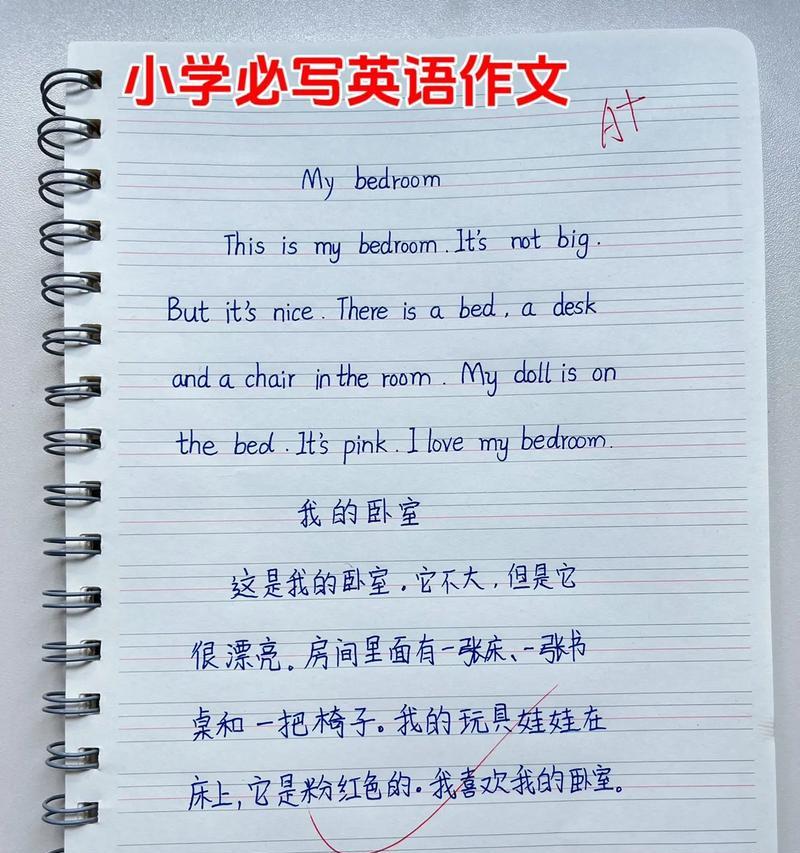 小学必写英语作文
A+
My bedroom
This is my bedroom. It's not big.
But it's nice. There is a bed, a desk
and a chair in the room. My doll is on
the bed. It's pink. I love my bedroom.
我的卧室
这是我的卧室。它不大,但是它
很漂亮。房间里面有一张床、一张书
桌和一把椅子。我的玩具娃娃在
床上,它是粉红色的。我喜欢我的卧室。